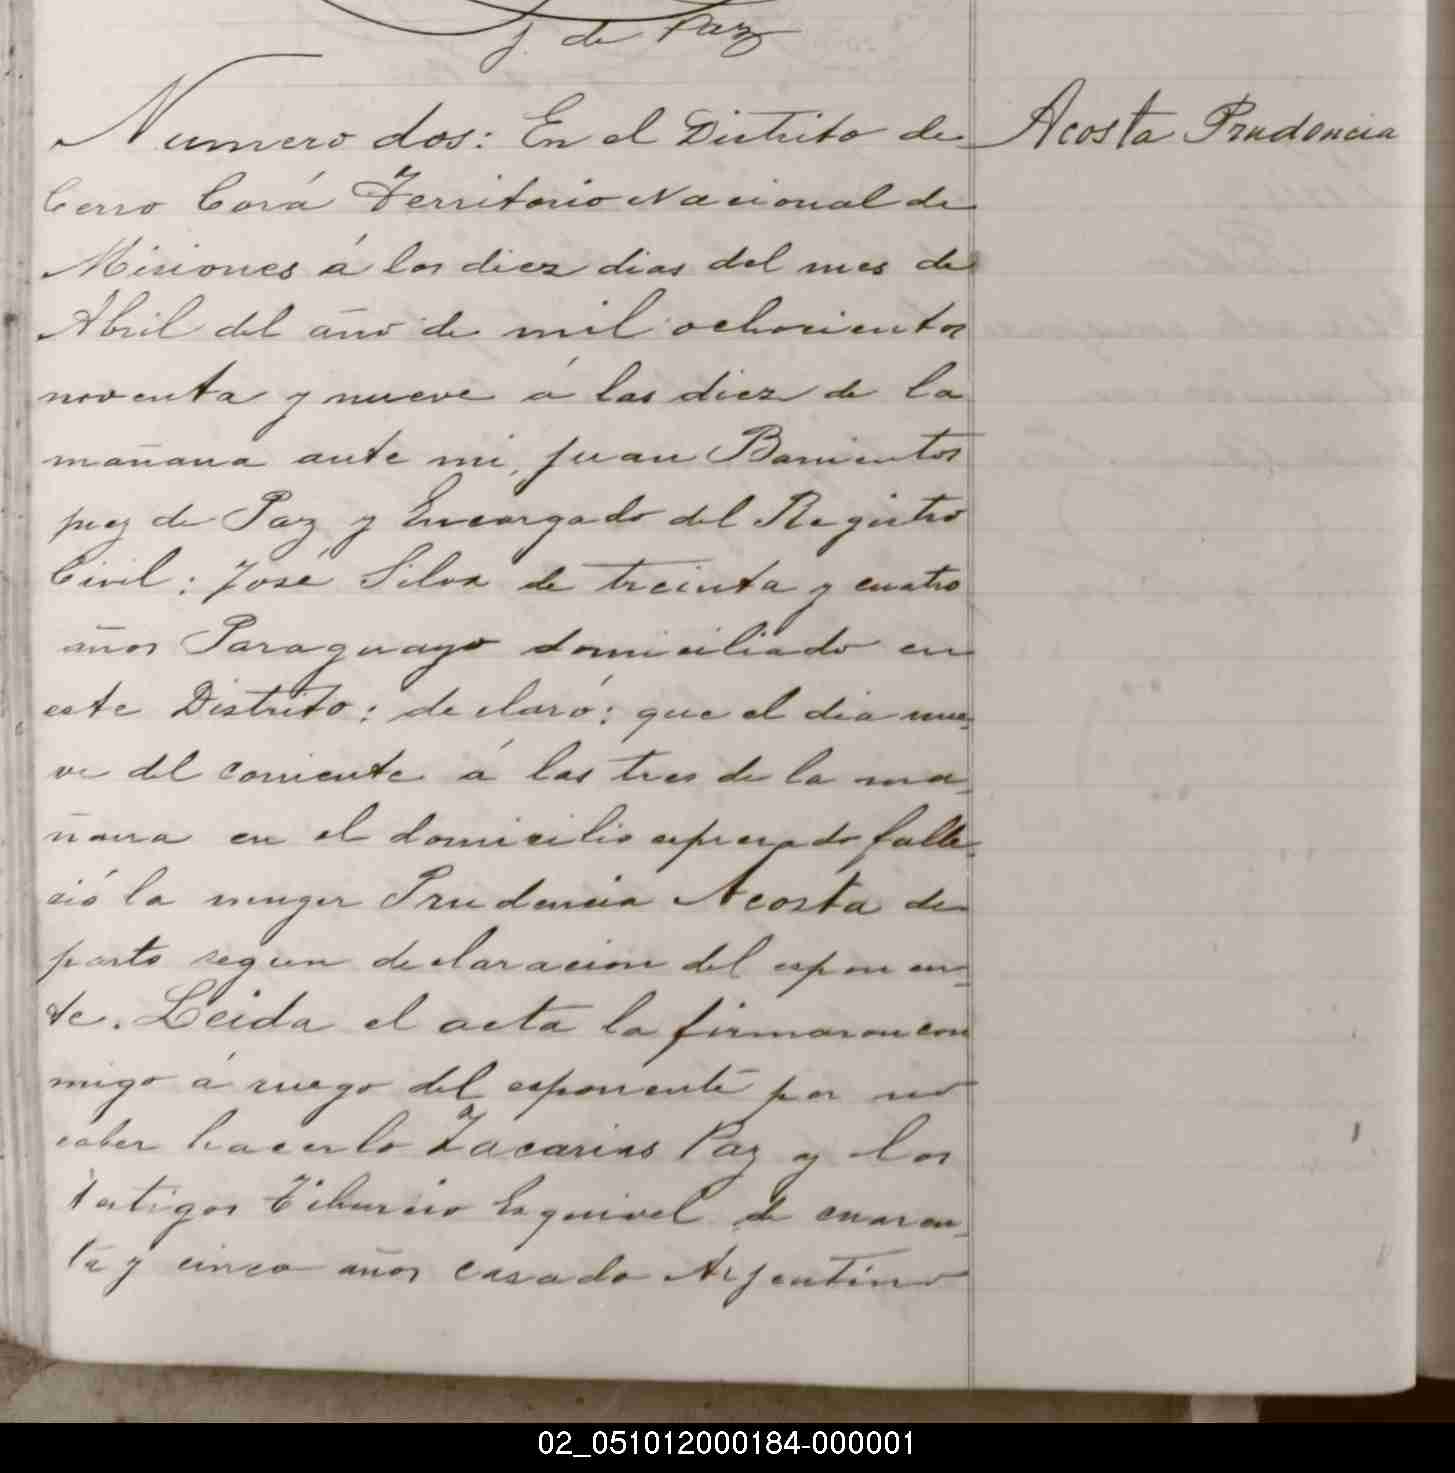 J. de Paz
Numero dos: En el Distrito de
Acosta Prudencia
Cerro Corá Territorio Nacional de
Misiones á los diez dias del mes de
Abril del año de mil ochocientos
noventa y nueve á las diez de la
mañana ante mi, Juan Barrientos
juez de Paz y Encargado del Registro
Civil; José Silva de treinta y cuatro
años Paraguayo domiciliado en
este Distrito; declaró; que el dia nue=
ve del corriente á las tres de la ma=
ñana en el domicilio espresado falle=
ció la muger Prudencia Acosta de
parto segun declaracion del esponen=
te. Leida el acta la firmaron con
migo á ruego del esponente por no
saber hacerlo Zacarias Paz y los
testigos Tiburcio Esquivel de cuaren=
ta y cinco años casado Argentino
02_051012000184-000001